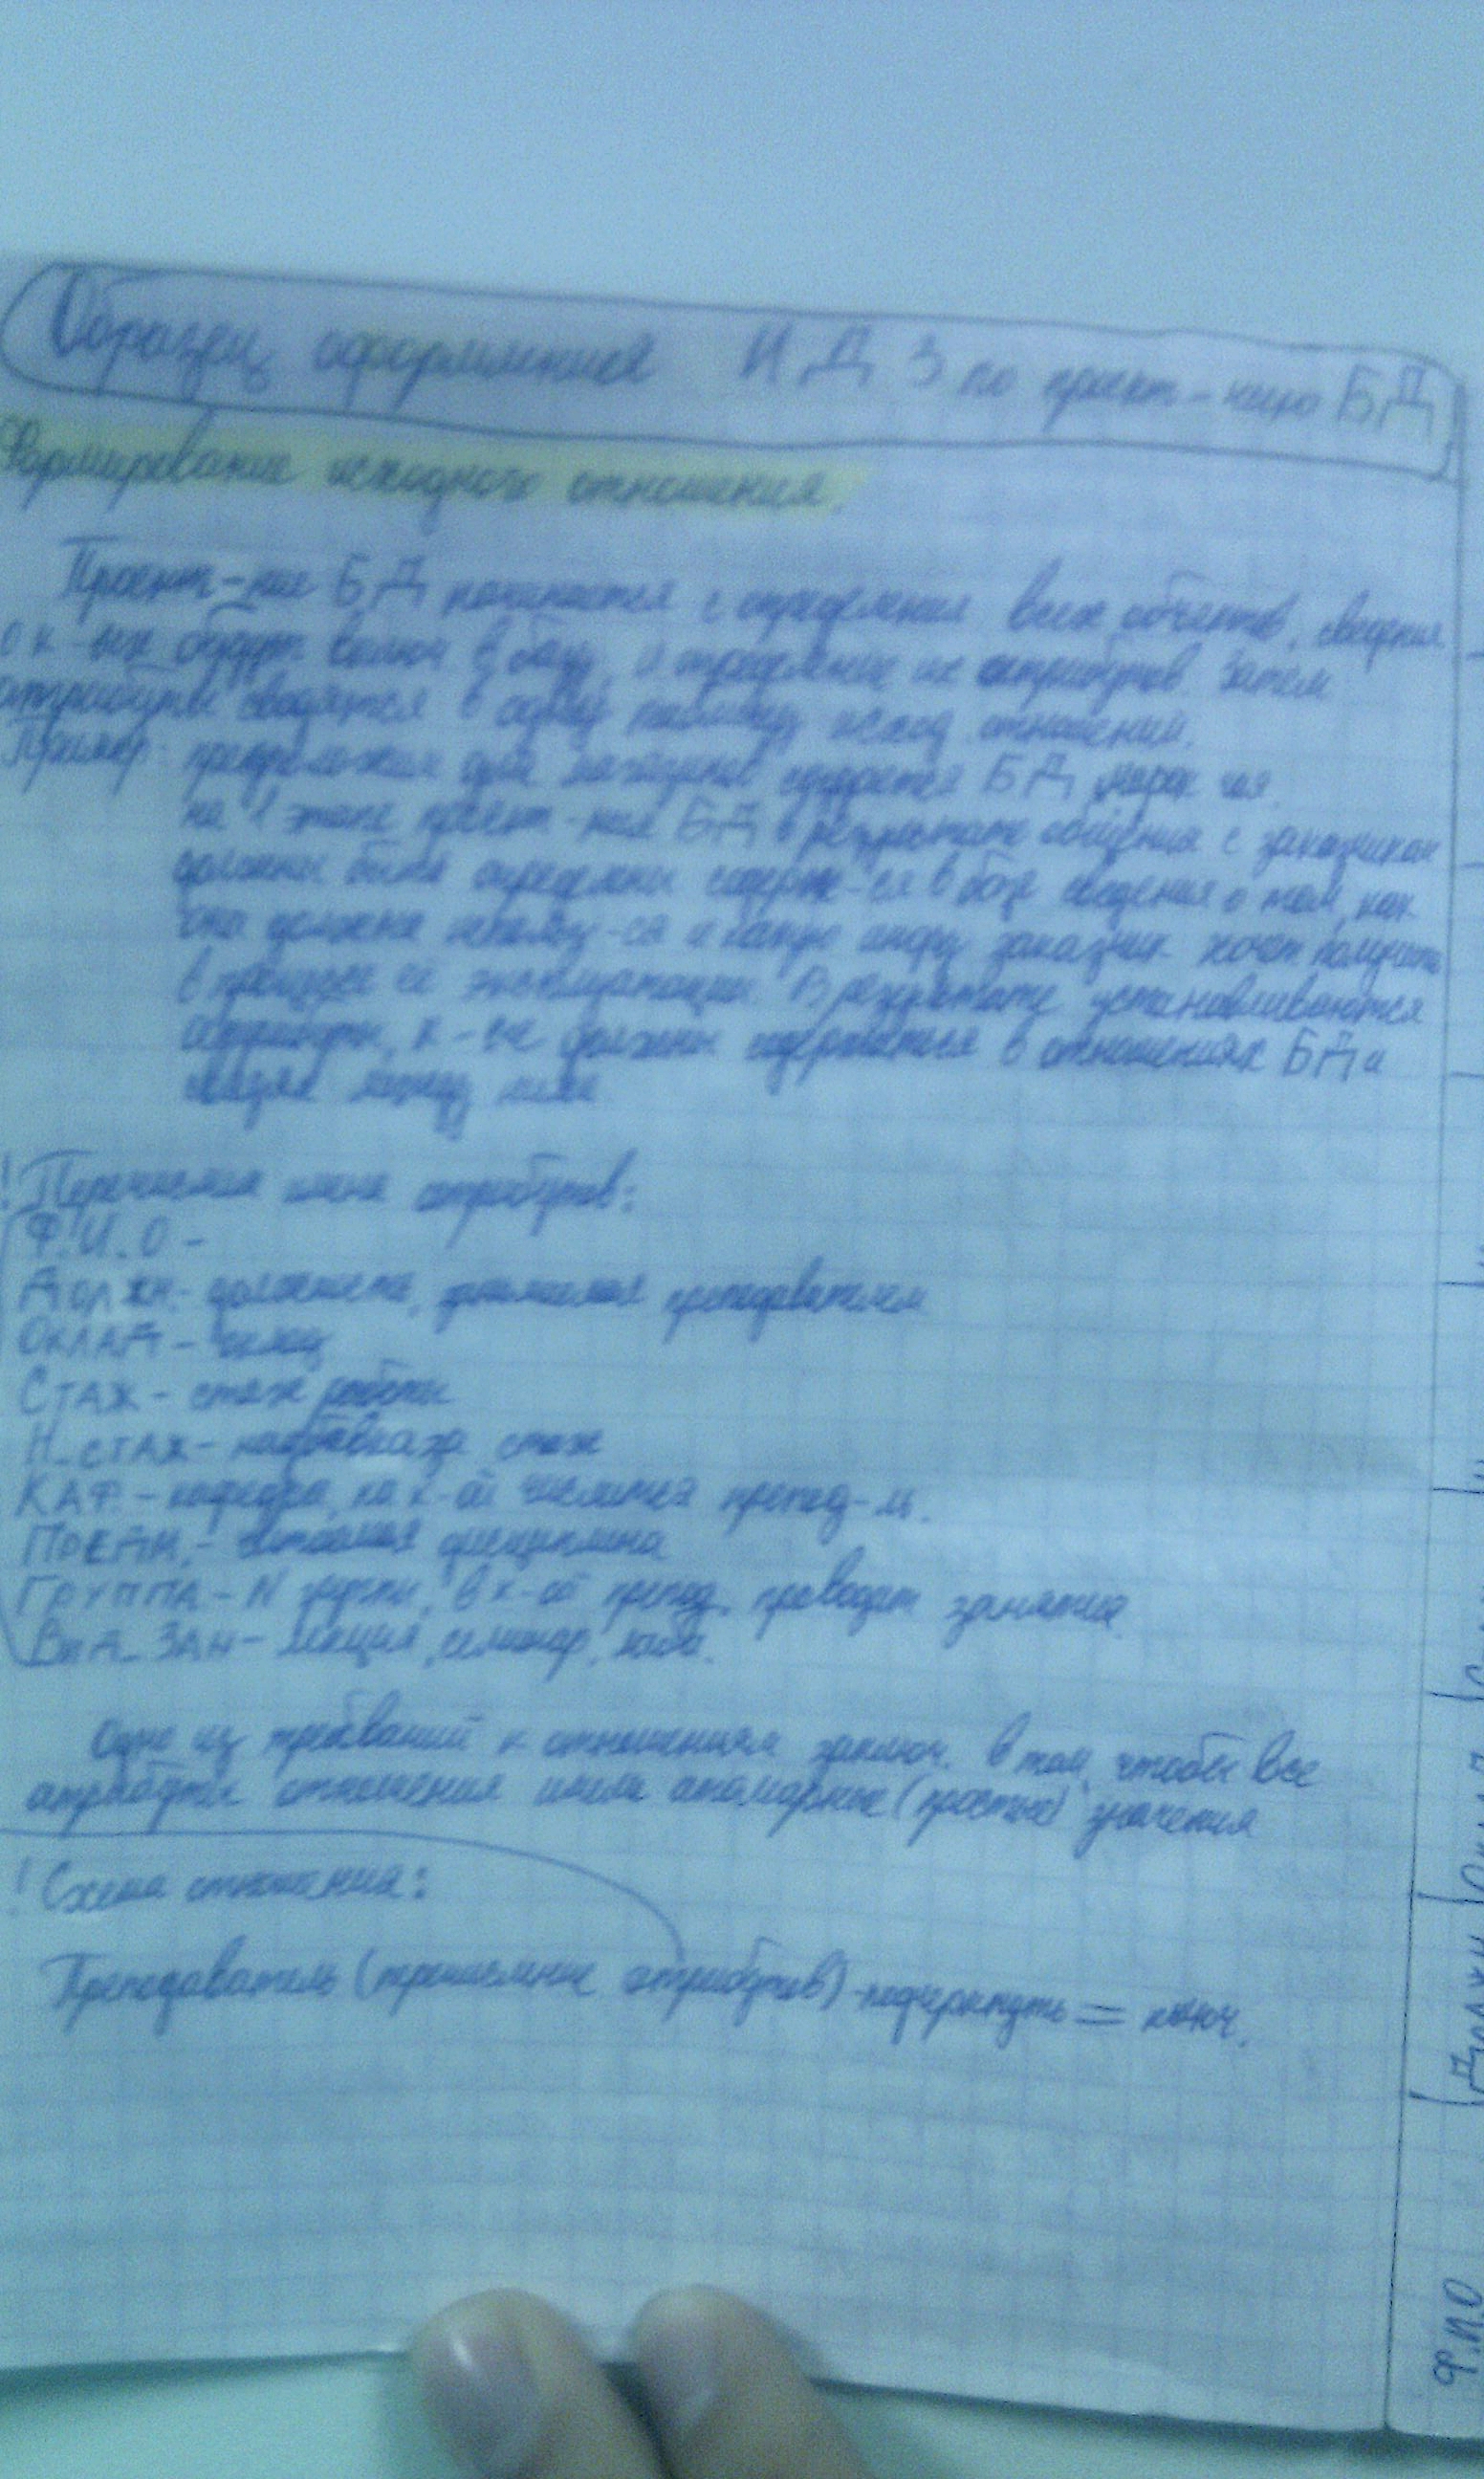 Образец оформления ИДЗ по проект-нию БД
Формирование исходного отношения.
Проект-ние БД начинается с определения всех объектов, сведения
о к-ых будут в базу, и определение их атрибутов. Затем
атрибуты сводятся в одну таблицу исход. отношений.
Пример: предположим для создается БД
на 1 этапе проект-ния БД в результате общения с заказчиком
должны быть определены содерж-ся в базе сведения о том, как
она должна использ-ся и какую инфу заказчик хочет получить
в процессе её эксплуатации. В результате устанавливаются
атрибуты, к-ые должны содержаться в отношениях БД и
связях между ними
! Перечислим имена атрибутов:
Ф.И.О -
Должн. - должность, занимаемая преподавателем
ОКЛАД -
СТАЖ - стаж работы
Н_СТАЖ - надбавка за стаж
КАФ. - кафедра, на к-ой числится препод-ль.
дисциплина
ГРУППА - N группы, в к-ой препод. проводит занятия
ВИД_ЗАН - лекция, семинар, лаба.
Одно из требований к отношениям заключ. в том, чтобы все
атрибуты отношения имели атомарные (простые) значения
! Схема отношения:
Преподаватель (перечисление атрибутов) - подчеркнуть = ключ.
Ф.И.О
Должн